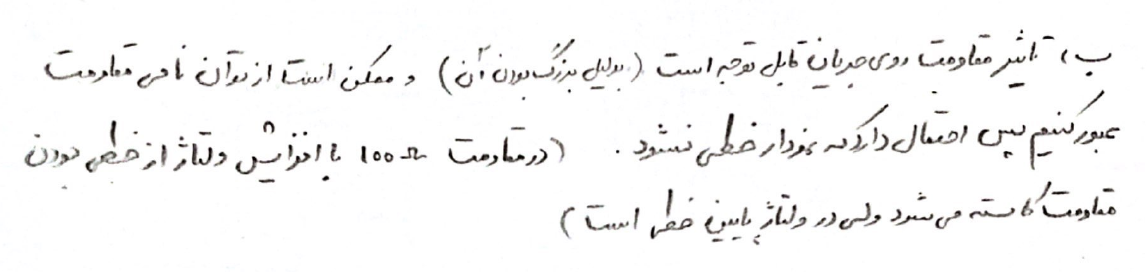 ب) تاثیر مقاومت روی جریان قابل توجه است (بدلیل بزرگ بودن آن) و ممکن است از توان نامی مقاومت
عبور کنیم پس احتمال دارد که نمودار خطی نشود. (در مقاومت 100Ω با افزایش ولتاژ از خطی بودن
مقاومت کاسته می شود ولی در ولتاژ پایین خطی است)